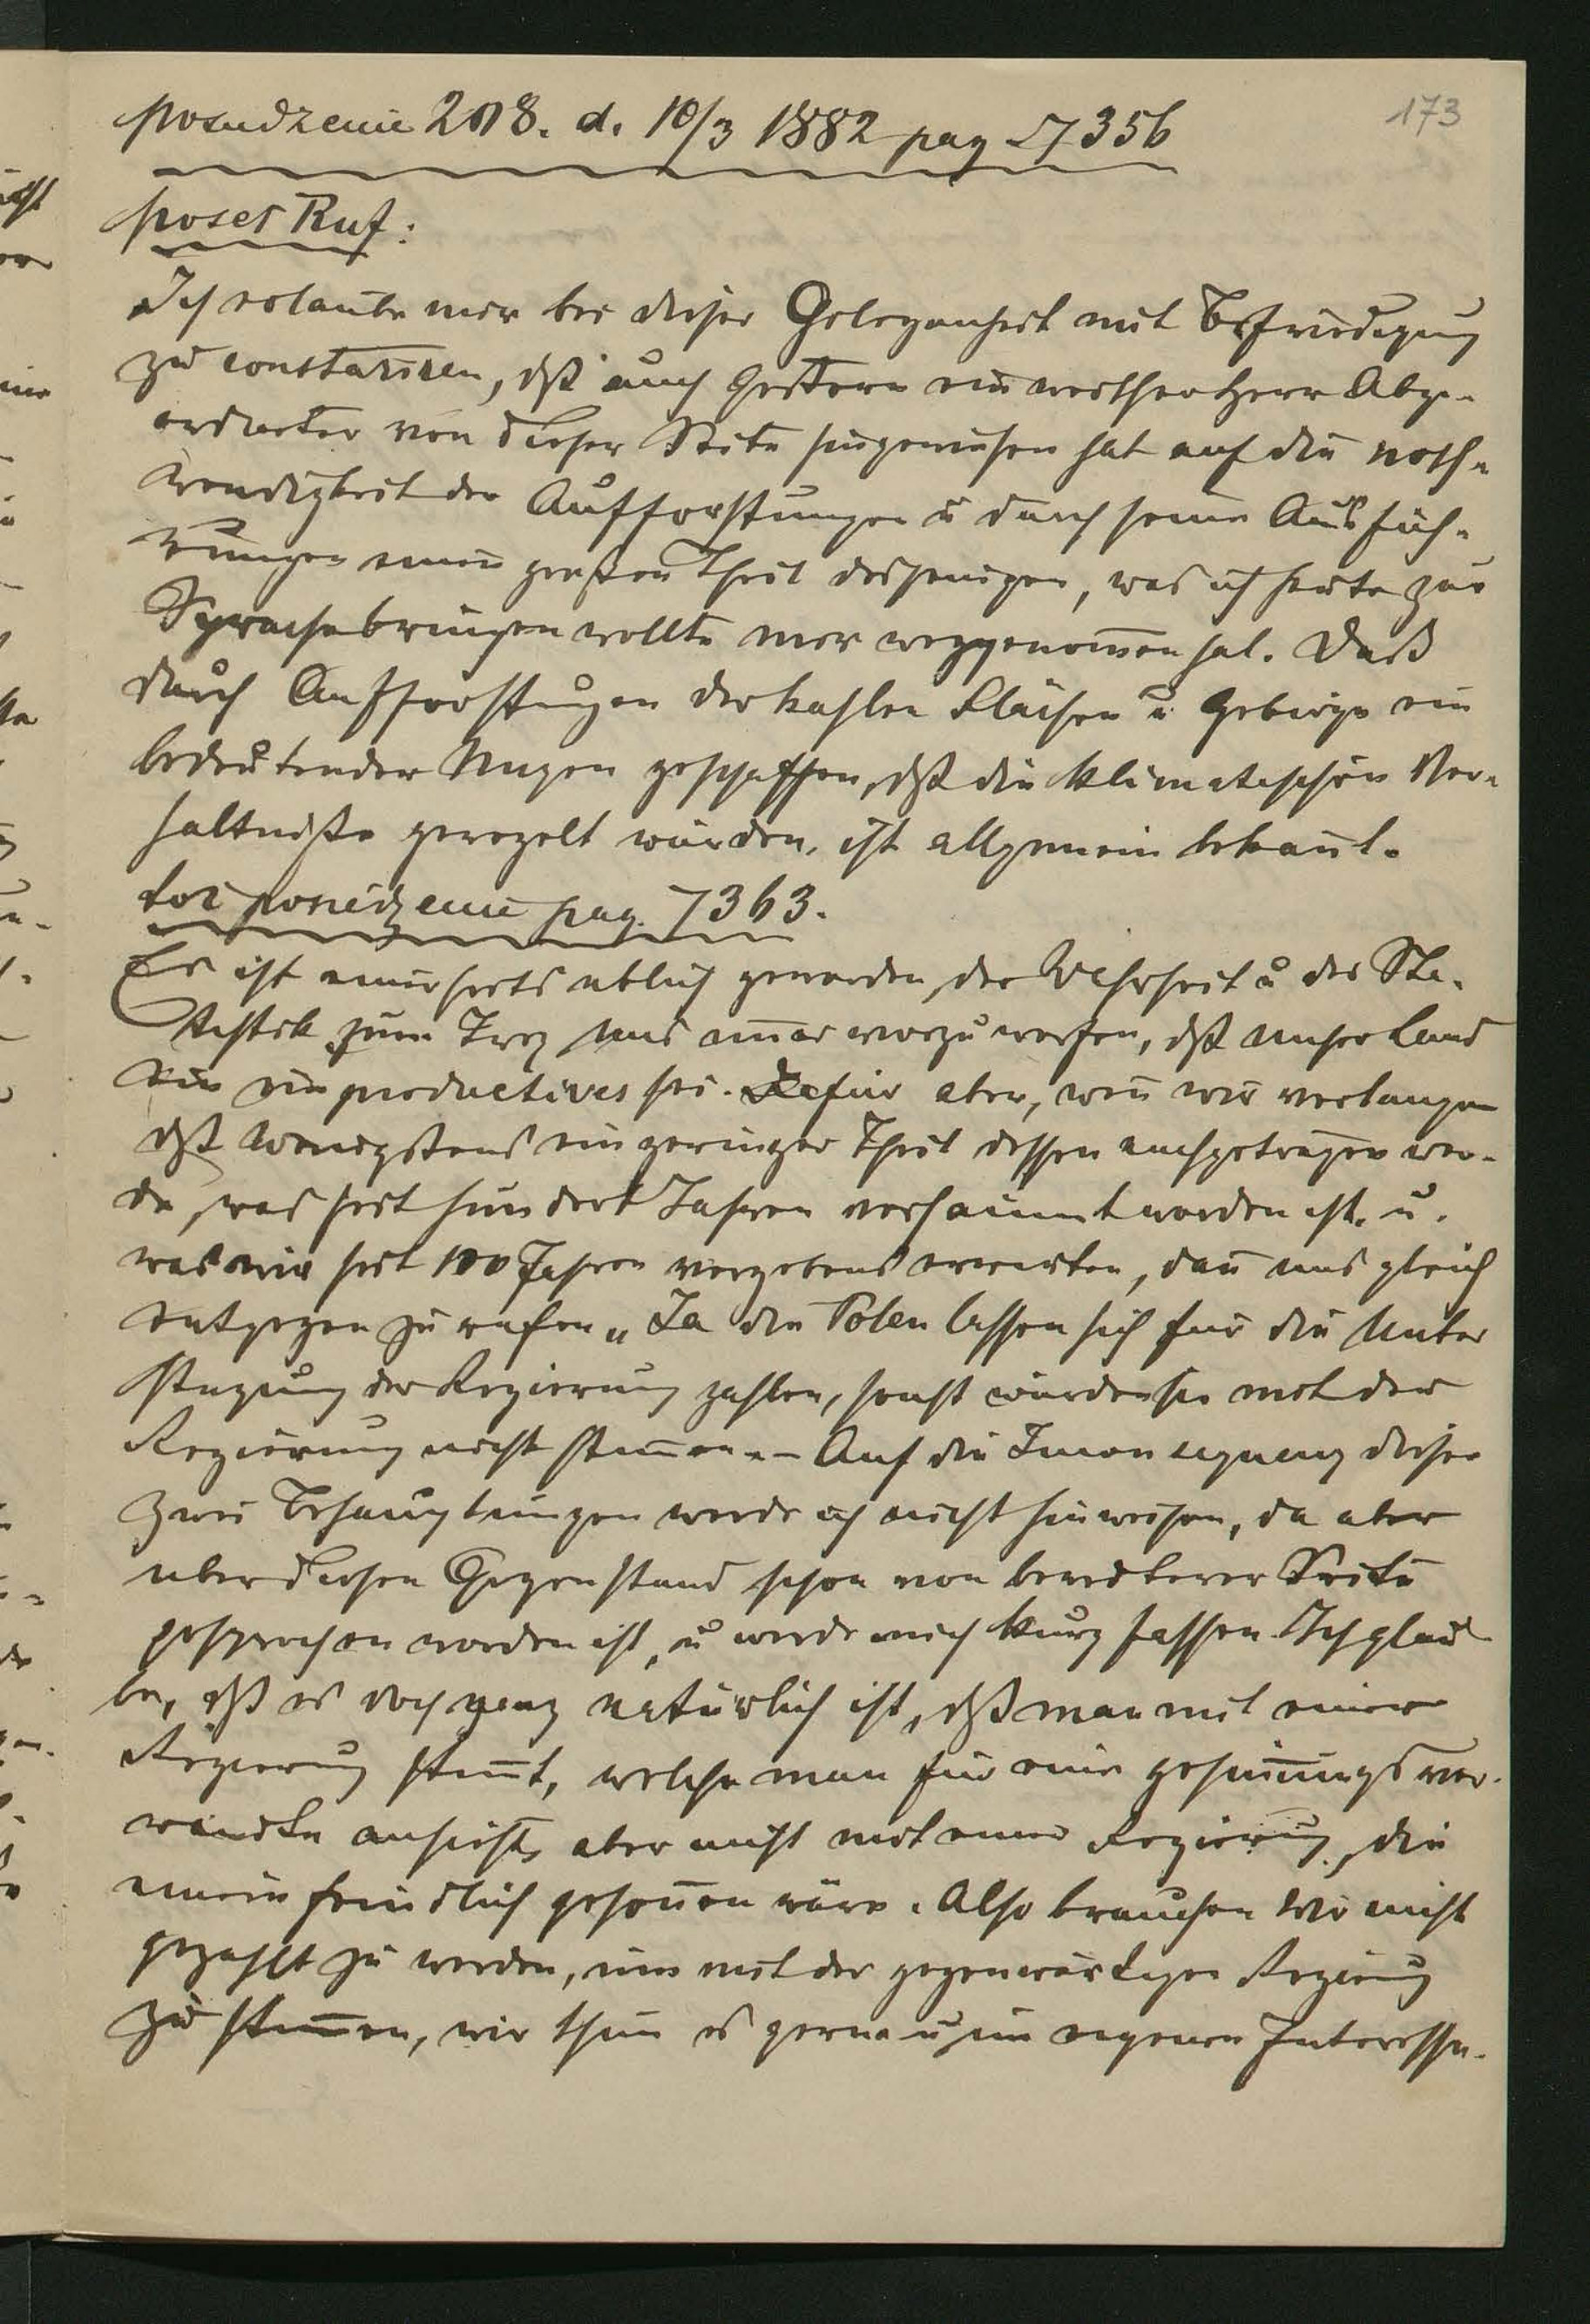 173
posiedzenie 208. d. 10/3 1882 pag 7356
poseł Ruf:
Ich erlaube mir bei dieser Gelegenheit mit Befriedigung
zu constatiren, dß auch gestern ein werther Herr Abge-
ordneter von dieser Seite hingewiesen hat auf die noth-
wendigkeit der Aufforstungen u durch seine Ausfüh-
rungen einen großen Theil desjenigen, was ich heute zur
Sprache bringen wollte mir weggenommen hat. Daß
durch Aufforstungen der kahlen Flächen u Gebirge ein
bedeutender Nuzen geschaffen, dß die klimatischen Ver-
haltniße geregelt würden, ist allgemein bekannt.
toż posiedzenie pag. 7363.
Es ist einerseits ublich geworden, der Wahrheit u der Sta-
tistik zum Troz uns immer vorzuwerfen, dß unser Land
ein productives sei. Dafür aber, wenn wir verlangen
dß wenigstens ein geringer Theil dessen nachgetragen wer-
de, was seit hundert Jahren versaumt worden ist. u.
was wir seit 100 Jahren vergebens erwarten, dann uns gleich
entgegen zu rufen „Ja die Polen lassen sich für die Unter
stuzung der Regierung zahlen, sonst würden sie mit der
Regierung nicht stimmen" – Auf die Inconsequenz dieser
zwei Behauptungen werde ich nicht hinweisen, da aber
uber diesen Gegenstand schon von beredterer Seite
gesprochen worden ist, u werde mich kurz fassen. Ich glau
be, dß es doch ganz natürlich ist, dß man mit einer
Regierung stimmt, welche man für eine gesinnungsver-
wandte ansieht, aber nicht mit einer Regierung, die
einem feindlich gesonnen wäre. Also brauchen wir nicht
gezahlt zu werden, um mit der gegenwärtigen Regierung
zu stimmen, wir thun es gerne u im eigenen Interesse.